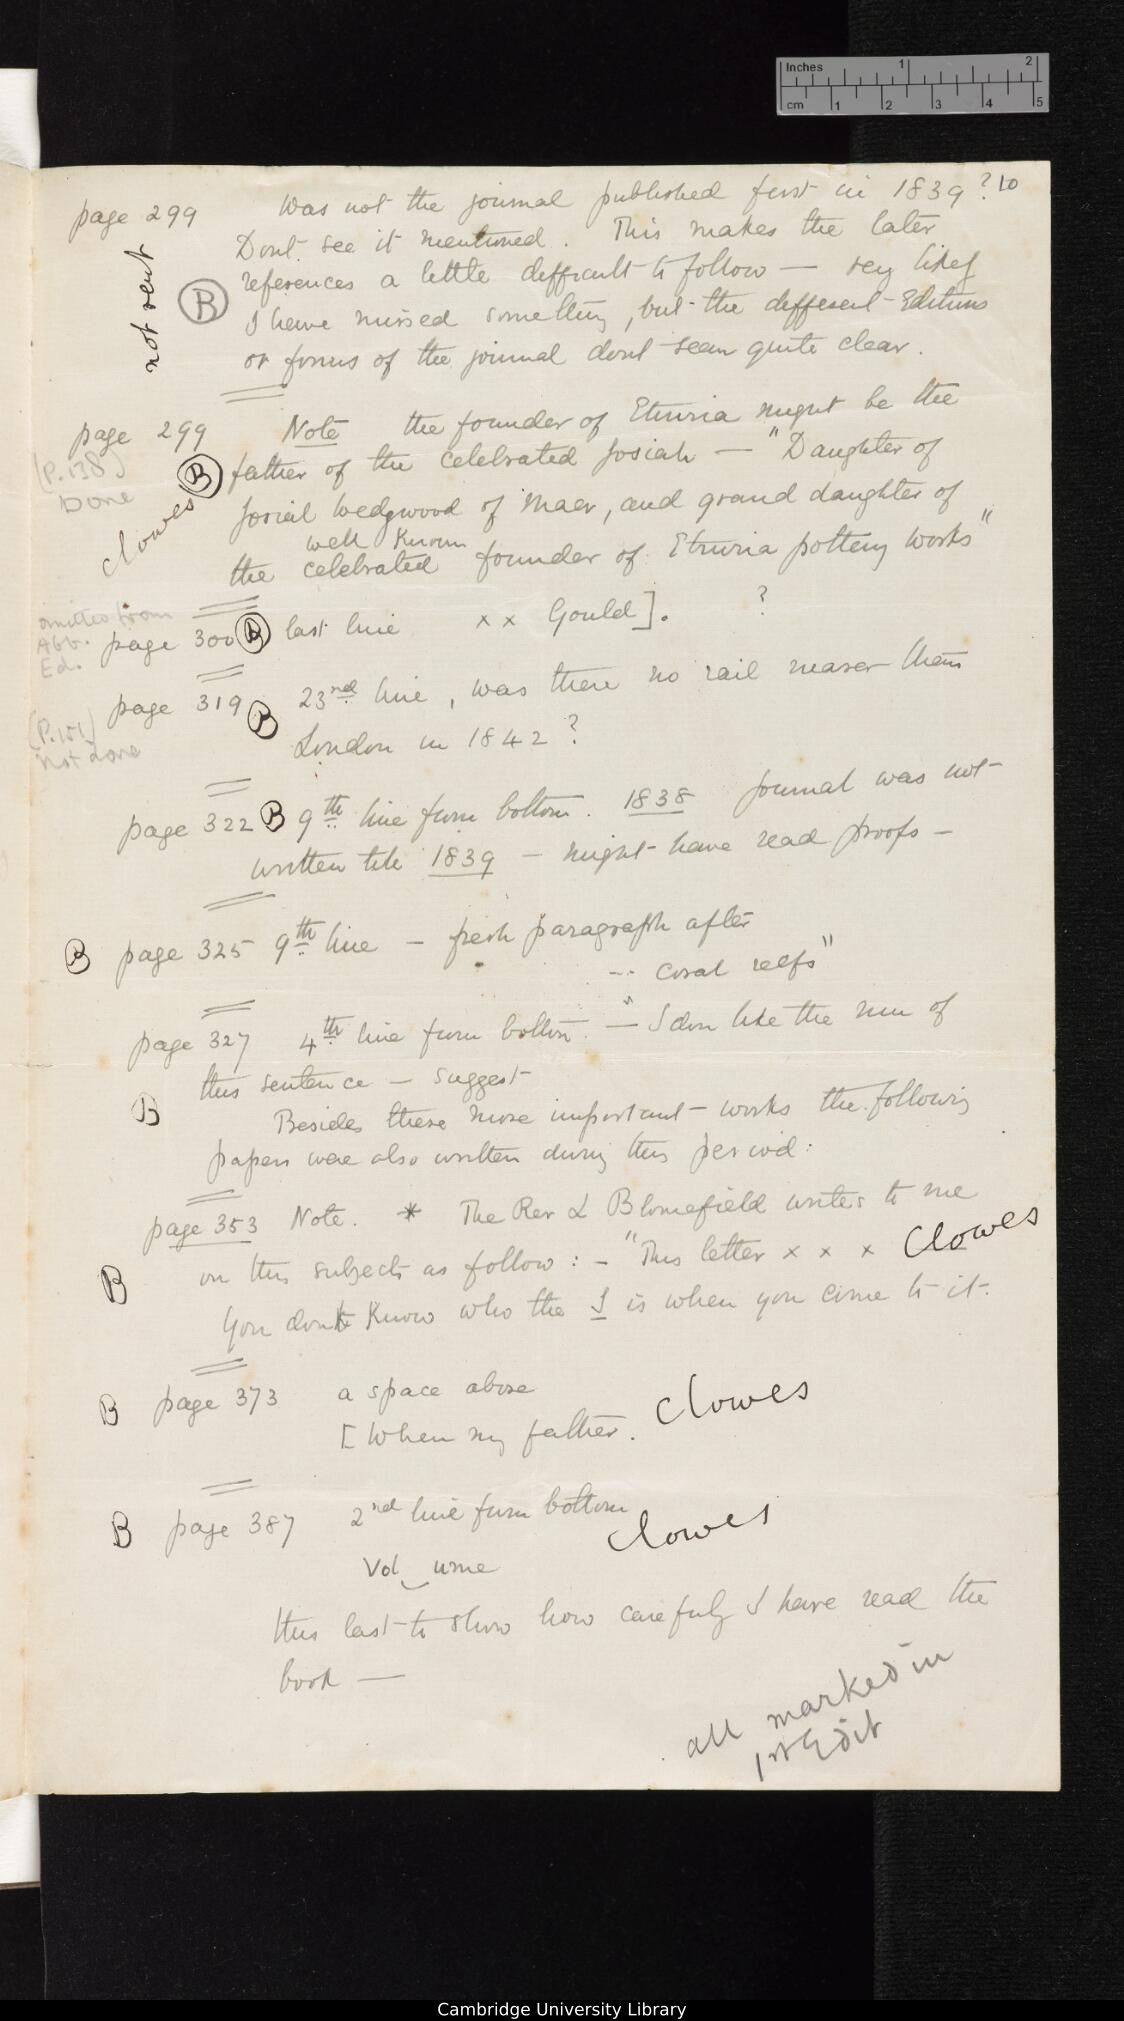 Inches 1 2
cm 1 2 3 4 5
10
page 299 Was not the journal published first in 1839?
Dont see it mentioned. This makes the later
references a little difficult to follow — very likely
not sent
B
I have missed something, but the different Editions
or forms of the journal dont seem quite clear.
page 299 Note the founder of Etruria might be the
(P.138)
Done
B
Clowes
father of the celebrated Josiah — "Daughter of
Josiah Wedgwood of Maer, and grand daughter of
well Known
the celebrated founder of Etruria pottery works"
omitted from
Abb.
Ed.
page 300 B last line x x Gould]. ?
page 319 B 23rd line, was there no rail nearer than
(P.151)
not done
London in 1842?
page 322 B 9th line from bottom. 1838 Journal was not
written till 1839 — might have read proofs —
B page 325 9th line — fresh paragraph after
coral reefs"
page 327 4th line from bottom. — I don like the run of
this sentence — suggest
B
Besides these more important works the following
papers were also written during this period:
page 353 Note. * The Rev L Blomefield writes to me
B on this subject as follow: — "This letter x x x Clowes
You dont Know who the I is when you come to it.
B page 373 a space above
[When my father. Clowes
B page 387 2nd line from bottom
Clowes
Vol ume
this last to show how carefuly I have read the
book —
all marked in
1st Edit
Cambridge University Library